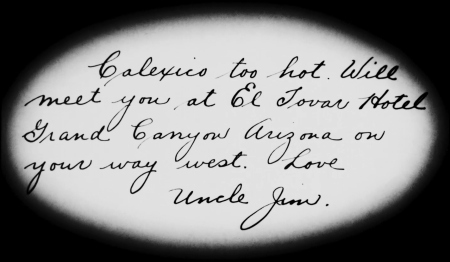 Calexico too hot. Will
meet you at El Tovar Hotel
Grand Canyon Arizona on
your way west. Love
Uncle Jim.